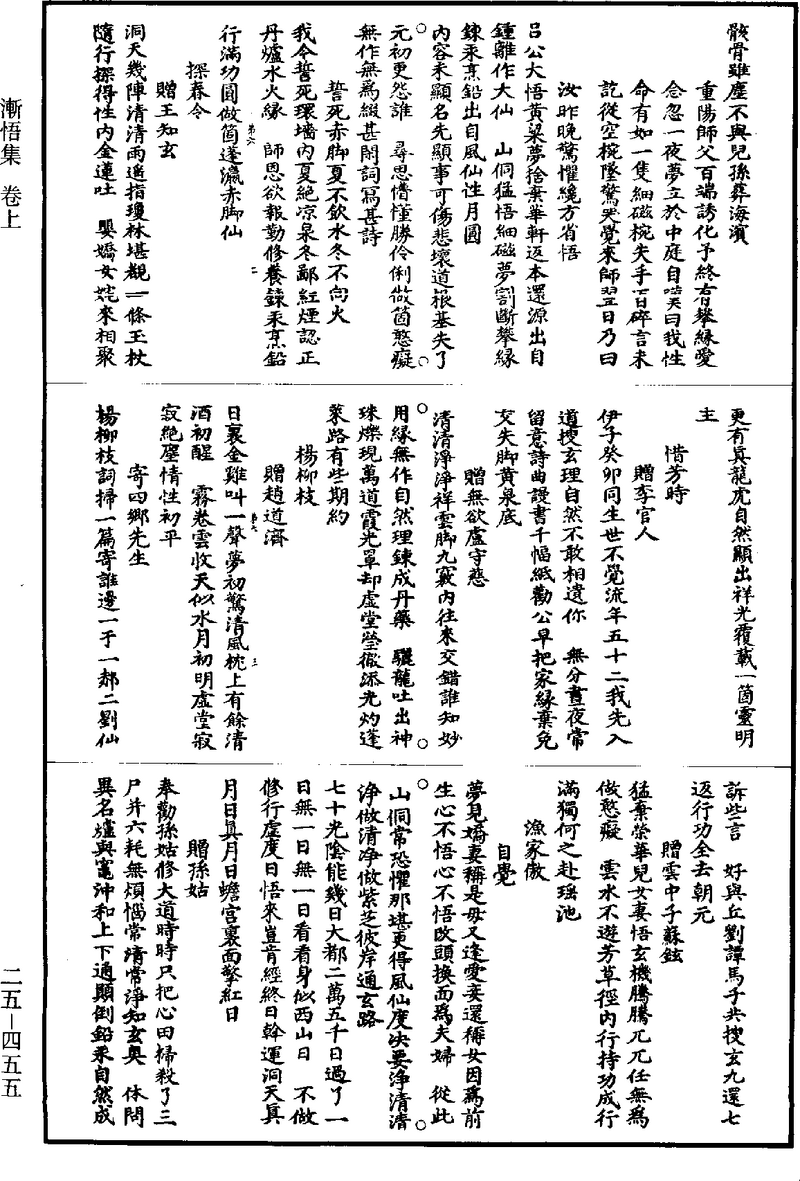 骸骨雖塵不與兒孫葬海濱
重陽師父百端誘化予終有攀緣愛
念忽一夜夢立於中庭自嘆曰我性
命有如一隻細磁椀失手百碎言未
訖從空椀墜驚哭覺來師翌日乃曰
汝昨晚驚懼纔方省悟
呂公大悟黃粱夢捨棄華軒返本還源出自
鍾離作大仙 山侗猛悟細磁夢割斷攀緣
鍊汞烹鉛出自風仙性月圓
內容未顯名先顯事可傷悲壞道根基失了
元初更怨誰 尋思懵懂勝伶俐做箇憨癡
無作無為綴甚閑詞寫甚詩
誓死赤脚夏不飲水冬不向火
我今誓死環墻內夏絕凉泉冬鄙紅煙認正
丹爐水火緣 師恩欲報勤修養鍊汞烹鉛
行滿功圓做箇蓬瀛赤脚仙
探春令
贈王知玄
洞天幾陣清清雨遙指瓊林堪覩一條玉杖
隨行探得性內金蓮吐 嬰嬌女姹來相聚
更有真龍虎自然顯出祥光覆載一箇靈明
主
惜芳時
贈李官人
伊予癸卯同生世不覺流年五十二我先入
道搜玄理自然不敢相遺你 無分晝夜常
留意詩曲謾書千幅紙勸公早把家緣棄免
交失脚黃泉底
贈無欲盧守慈
清清淨淨祥雲脚九竅內往來交錯誰知妙
用緣無作自然理鍊成丹藥 驪龍吐出神
珠爍現萬道霞光罩却虛堂瑩徹添光灼蓬
萊路有些期約
楊柳枝
贈趙道濟
日裏金雞叫一聲夢初驚清風枕上有餘清
酒初醒 霧卷雲收天似水月初明虛堂寂
寂絕塵情性初平
寄四鄉先生
楊柳枝詞掃一篇寄誰邊一于一郝二劉仙
訴些言 好與丘劉譚馬子共搜玄九還七
返行功全去朝元
贈雲中子蘇鉉
猛棄榮華兒女妻悟玄機騰騰兀兀任無為
做憨癡 雲水不遊芳草徑內行持功成行
滿獨何之赴瑤池
漁家傲
自覺
夢見嬌妻稱是母又逢愛妾還稱女因為前
生心不悟心不悟改頭換面為夫婦 從此
山侗常恐懼那堪更得風仙度决要淨清清
淨做清淨做紫芝彼岸通玄路
七十光陰能幾日大都二萬五千日過了一
日無一日無一日看看身似西山日 不做
修行虛度日悟來豈肯經終日斡運洞天真
月日真月日蟾宮裏面擎紅日
贈孫姑
奉勸孫姑修大道時時只把心田掃殺了三
尸并六耗無煩惱常清常淨知玄奧 休問
異名爐與竈沖和上下通顛倒鉛汞自然成
漸悟集 卷上
二五—四五五